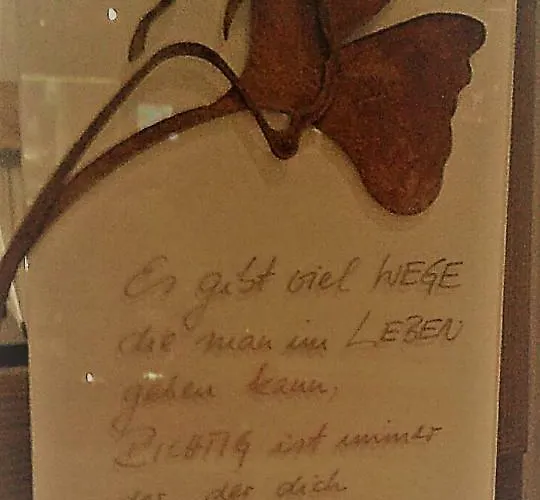 Es gibt viel WEGE
die man im LEBEN
gehen kann,
RICHTIG ist immer
der der dich